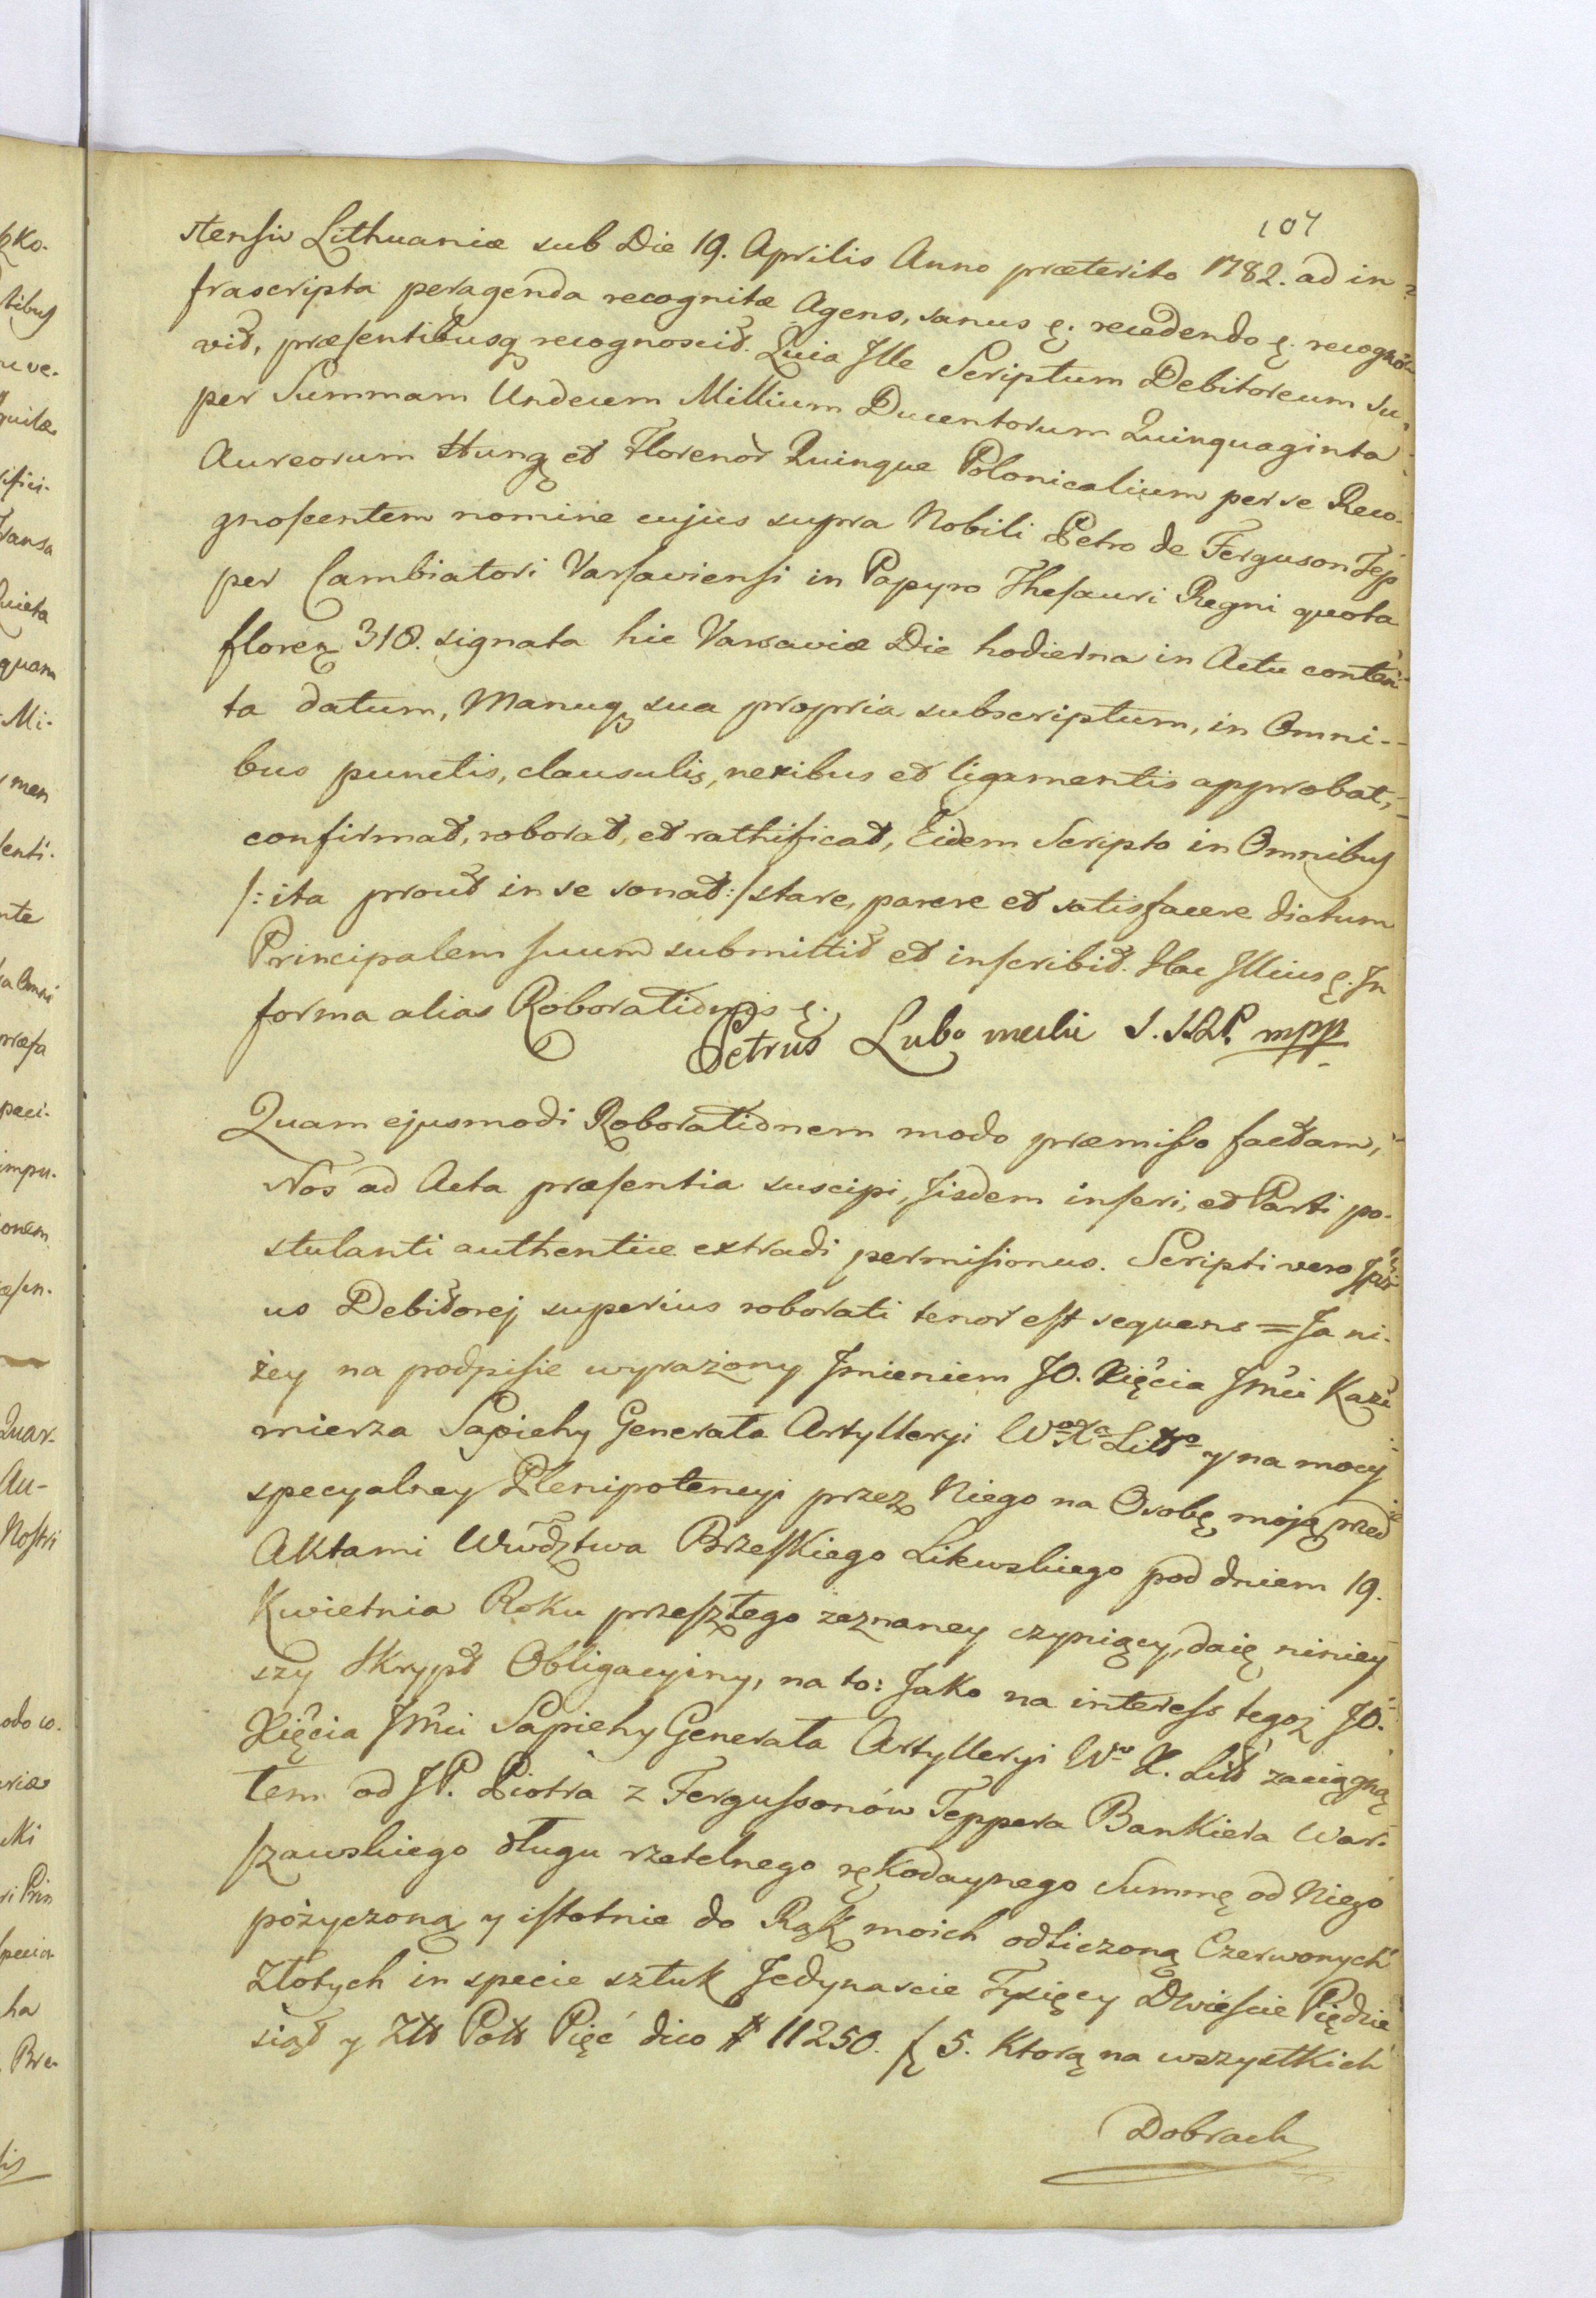 107
stensis Lithuaniæ sub Die 19. Aprilis Anno præterito 1782. ad in-
frascripta peragenda recognitæ Agens, sanus ę. recedendo ę. recognó-
vit, præsentibusq recognoscit. Quia Ille Scriptum Debitoreum su.
per Summam Undecem Millium Ducentorum Quinquaginta
Aureorum Hung et Florenor Quinque Polonicalium per se Reco-
gnoscentem nomine cujus supra Nobili Petro de Ferguson Tep
per Cambiatori Varsaviensi in Papyro Thesauri Regni quota
floren 318. signata hic Varsaviæ Die hodierna in Actu conten-
ta datum, Manuq sua propria subscriptum, in Omni-
bus punctis, clausulis, nexibus et ligamentis approbat,
confirmat, roborat, et rathificat, Eidem Scripto in Omnibus
/: ita prout in se sonat :/ stare, parere et satisfacere dictum
Principalem suum submittit et inscribit. Hac Illius ę. In
forma alias Roborationis ę.
Petrus mpp
Quam ejusmodi Roborationem modo præmisso factam,
Nos ad Acta præsentia suscipi, Iisdem inseri, et Parti po-
stulanti authentice extradi permisimus. Scripti vero Ipsi-
us Debitorej superius roborati tenor est sequens = Ja ni-
żey na podpisie wyrażony Imieniem JO. Xięcia Jmci Kazi
mierza Sapiehy Generała Artylleryi Wo Xa Litto y na mocy
specyalney Plenipotencyi przez Niego na Osobę moją przed
Aktami Wwdztwa Brzeskiego Litewskiego pod dniem 19.
Kwietnia Roku przeszłego zeznaney czyniący, daię niniey
szy Skrypt Obligacyiny, na to: Jako na interess tegoż JO.
Xięcia Jmci Sapiehy Generała Artylleryi Wo X. Litt zaciągną
łem od JP. Piotra z Fergussonów Teppera Bankiera War-
szawskiego długu rzetelnego rękodaynego Summę od Niego
pożyczoną y istotnie do Rąk moich odliczoną Czerwonych
Złotych in specie sztuk Jedynascie Tysięcy Dwiescie Pięćdzie
siąt y Złł Poll Pięć dico # 11250. f 5. Którą na wszystkich
Dobrach